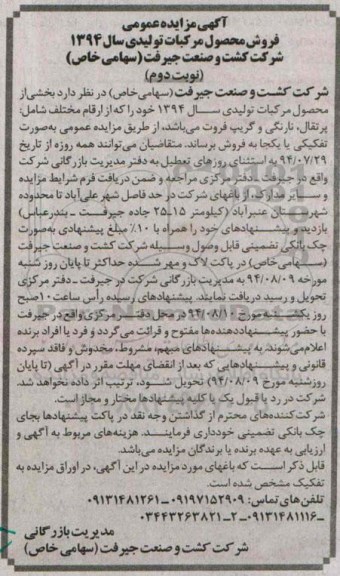 آگهی مزایده عمومی
فروش محصول مرکبات تولیدی سال ۱۳۹۴
شرکت کشت و صنعت جیرفت (سهامی خاص)
(نوبت دوم)
شرکت کشت و صنعت جیرفت (سهامی خاص) در نظر دارد بخشی از
محصول مرکبات تولیدی سال ۱۳۹۴ خود را که از ارقام مختلف شامل:
پرتقال، نارنگی و گریپ فروت می‌باشد، از طریق مزایده عمومی به‌صورت
تفکیکی یا یکجا به فروش برساند. متقاضیان می‌توانند همه روزه از تاریخ
۹۴/۰۷/۲۹ به استثنای روزهای تعطیل به دفتر مدیریت بازرگانی شرکت
واقع در جیرفت - دفتر مرکزی مراجعه و ضمن دریافت فرم شرایط مزایده
و سایر مدارک، از باغهای شرکت در حد فاصل شهر علی‌آباد تا محدوده
شهرستان عنبرآباد (کیلومتر ۱۵-۲۵ جاده جیرفت - بندرعباس)
بازدید و پیشنهادهای خود را همراه با ۱۰٪ مبلغ پیشنهادی به‌صورت
چک بانکی تضمینی قابل وصول وسیله شرکت کشت و صنعت جیرفت
(سهامی خاص) در پاکت لاک و مهر شده حداکثر تا پایان روز شنبه
مورخه ۹۴/۰۸/۰۹ به مدیریت بازرگانی شرکت در جیرفت - دفتر مرکزی
تحویل و رسید دریافت نمایند. پیشنهادهای رسیده رأس ساعت ۱۰ صبح
روز یکشنبه مورخ ۹۴/۰۸/۱۰ در محل دفتر مرکزی واقع در جیرفت
با حضور پیشنهاددهنده‌ها مفتوح و قرائت می‌گردد و فرد یا افراد برنده
اعلام می‌شوند. به پیشنهادهای مبهم، مشروط، مخدوش و فاقد سپرده
قانونی و پیشنهادهایی که بعد از انقضای مهلت مقرر در آگهی (تا پایان
روز شنبه مورخ ۹۴/۰۸/۰۹) تحویل شود، ترتیب اثر داده نخواهد شد.
شرکت در رد یا قبول یک یا کلیه پیشنهادها مختار و مجاز است.
شرکت‌کننده‌های محترم از گذاشتن وجه نقد در پاکت پیشنهادها بجای
چک بانکی تضمینی خودداری فرمایند. هزینه‌های مربوط به آگهی و
ارزیابی به عهده برنده یا برندگان مزایده می‌باشد.
قابل ذکر است که باغهای مورد مزایده در این آگهی، در اوراق مزایده به
تفکیک مشخص شده است.
تلفن‌های تماس: ۰۹۱۹۷۱۵۲۹۰۹ - ۰۹۱۳۱۴۸۱۲۶۱
۰۳۴۴۳۲۶۳۸۲۱-۲ - ۰۹۱۳۱۴۸۱۱۱۶ -
مدیریت بازرگانی
شرکت کشت و صنعت جیرفت (سهامی خاص)